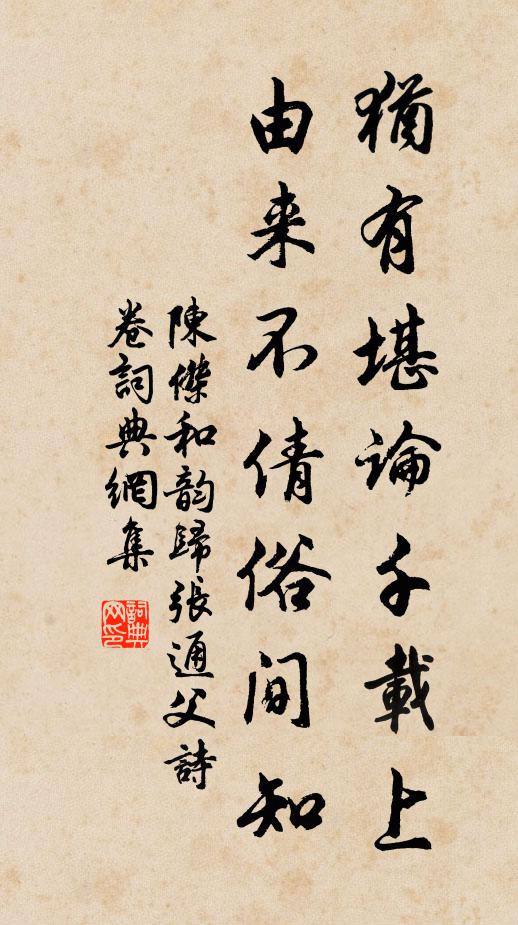 猶有堪論千載上
由来不倩俗間知
陳傑和韵歸張通父詩
卷詞典網集
詞典网印